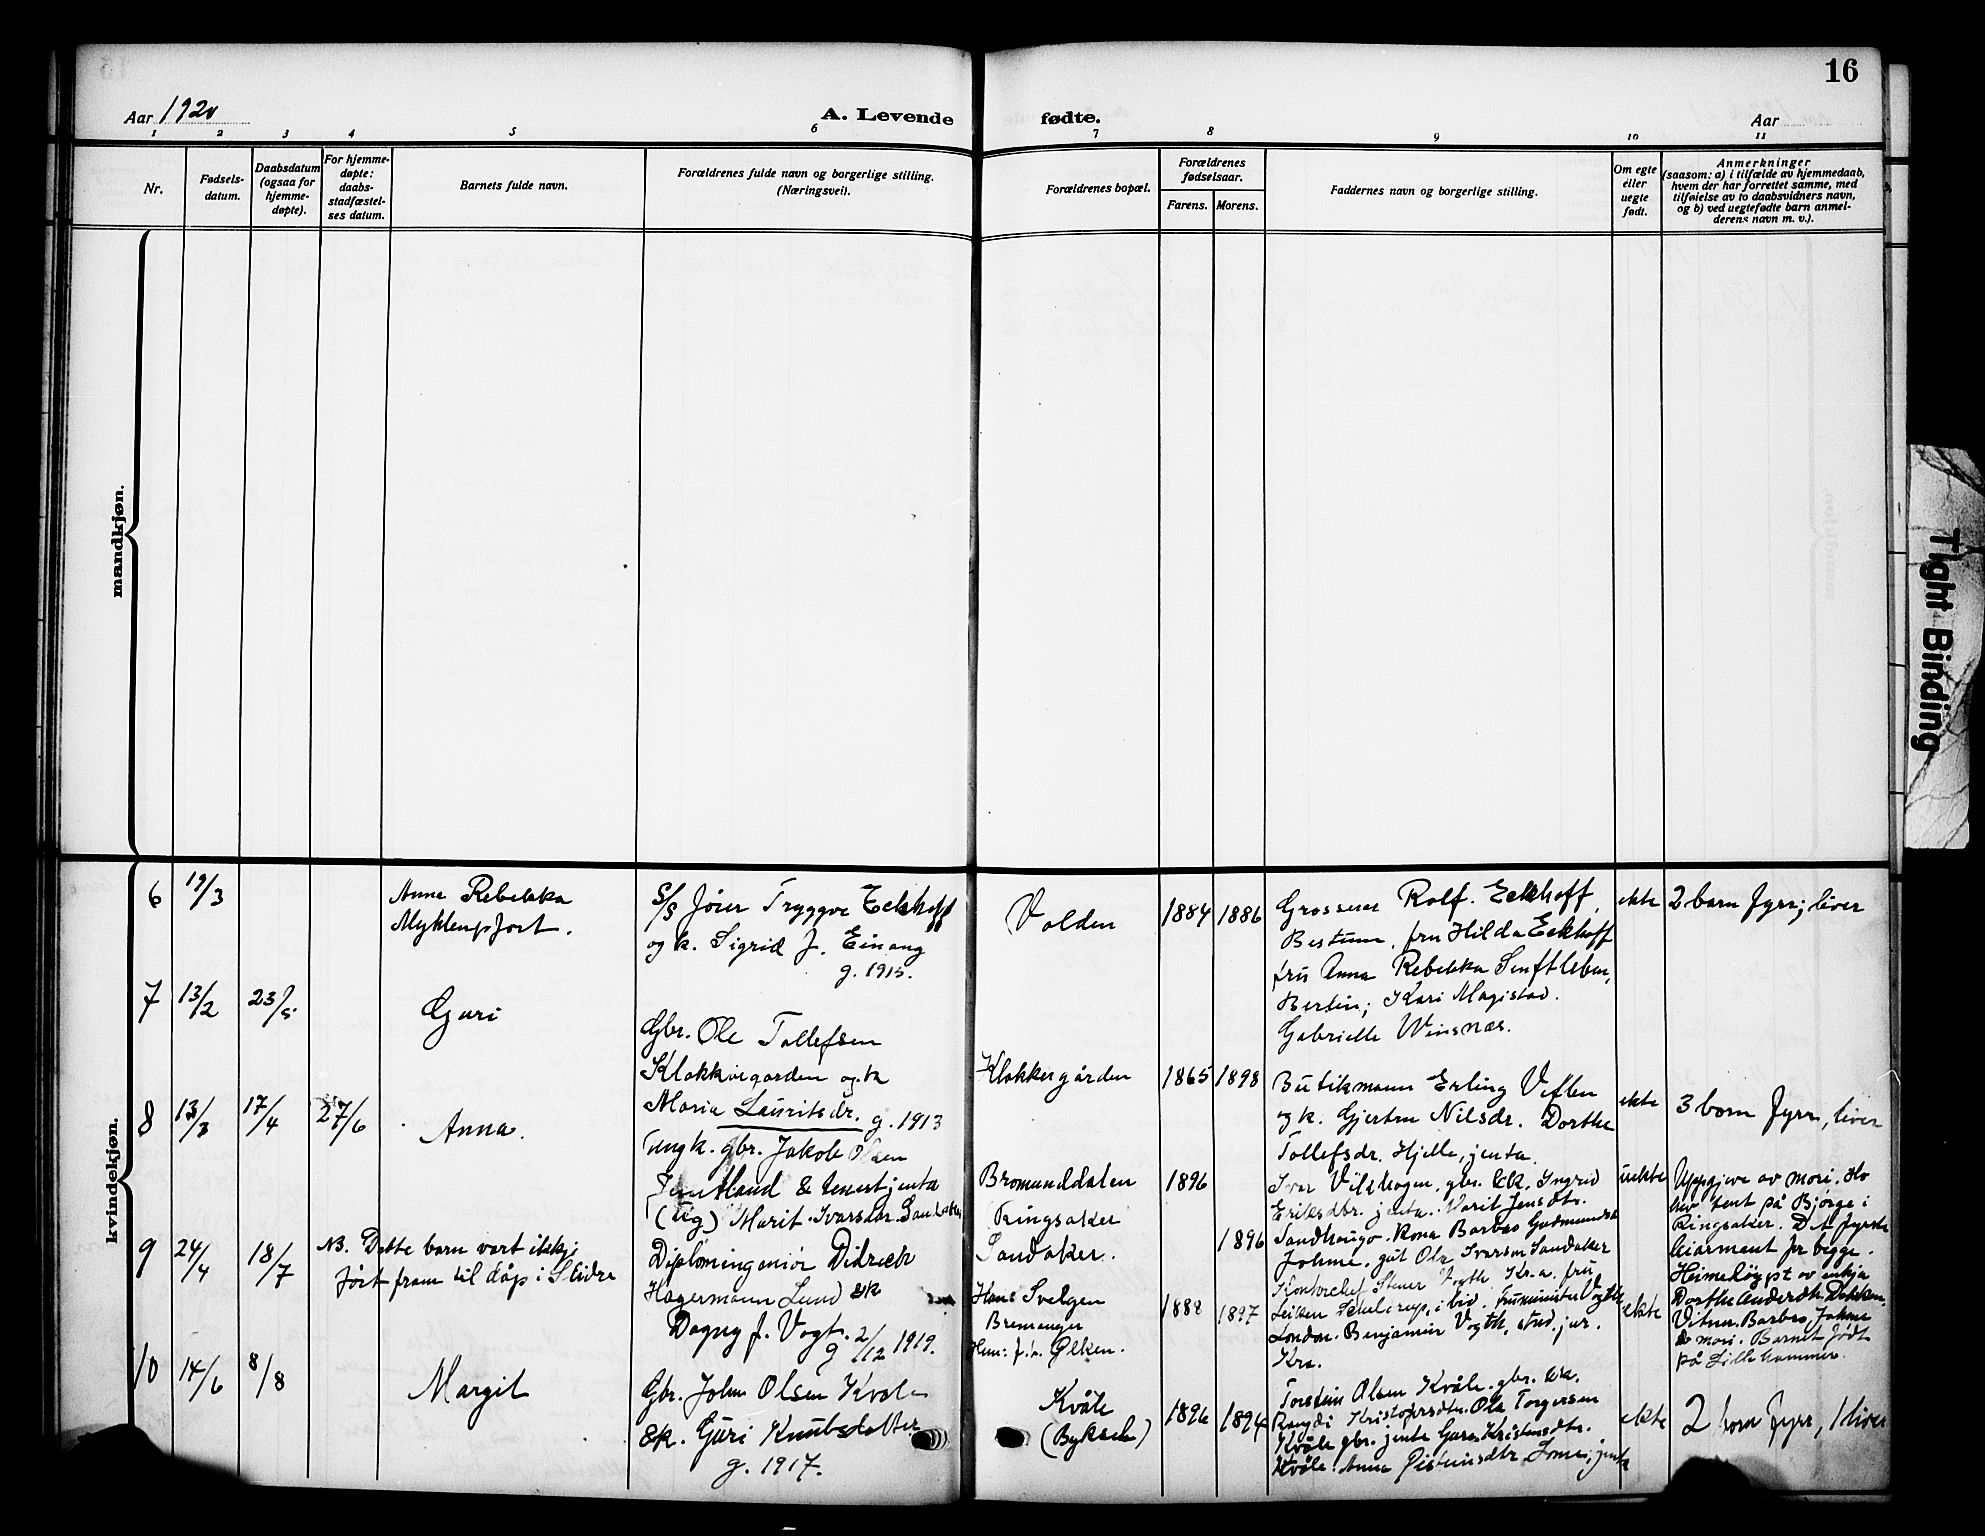 16
Aar 1920
A. Levende fødte.
Aar
1 2 3 4 5 6 7 8 9 10 11
Nr.
Fødsels-
datum.
Daabsdatum
(ogsaa for
hjemme-
døpte).
For hjemme-
døpte:
daabs-
stadfæstel-
ses datum.
Barnets fulde navn.
Forældrenes fulde navn og borgerlige stilling.
(Næringsvei).
Forældrenes bopæl.
Forældrenes
fødselsaar.
Farens. Morens.
Faddernes navn og borgerlige stilling.
Om egte
eller
uegte
født.
Anmerkninger
(saasom: a) i tilfælde av hjemmedaab,
hvem der har forrettet samme, med
tilføielse av to daabsvidners navn,
og b) ved uegtefødte barn anmel-
derens navn m. v.).
mandkjøn.
kvindekjøn.
Tight Binding
6 19/3
Anna Rebekka
Myklengsfort.
Tryggve Eckhoff
og k. Sigrid f. Einang
g. 1915.
Volden
1884 1886
Grosserer Rolf. Eckhoff,
Bestum, fru Hilda Eckhoff
fru Anna Rebekka Senftleben,
Berlin; Kari Magistad.
Gabrielle Winsnæs.
ekte
2 barn fyrr; liver
7 13/2
Guri
Gbr. Ole Tollefsen
Klokkargarden og k
Maria Lauritsdr. g. 1913
Klokkergården
1865 1898
Butikmann Erling Veflen
og k. Gjertru Nilsdr. Dorthe
Tollefsdr. Hjelle, jenta
ekte
3 born fyrr, liver
8 13/3 17/4 27/6
Anna.
Ungk. gbr. Jakob Olsen
& tenestjenta
(ug) Marit Ivarsdr. Sandaker
Bromunddalen
Ringsaker
Sandaker.
1896
1896
Ivar gbr. &k. Ingrid
Eriksdtr. jenta. Marit Jensdtr.
Sandhaugo. Kona Barbro Gudmundsd
Johme. gut Ola Ivarson Sandaker
uekte
Uppgjeve av mori. Ho
hev tent på Bjørge i
Ringsaker. D. fyrste
leiarmaal for begge.
Heimedøypt av enkja
Dorthe Andersdtr
Vitne. Barbro Johme
& mori. Barnet født
på Lillehammer.
9 24/4 18/7
NB. Dette barn vart ikkje
ført fram til dåp i Slidre
Diplomingeniør Didrich
Hagermann Lund &k
Dagny f. Vogt. g 2/12 1919.
Hans: Svelgen
Bremanger
Hen: f. Ølken.
1888 1897
Kontorchef Vogth Kr.a. fru
London. Benjamin Vogth, stud. jur.
Kra.
ekte
10 14/6 8/8
Margit
Gbr. John Olsen Kvåle
&k. Guri Knutsdatter
g. 1917.
Kvåle
1896 1894
Torstein Olsen Kvåle. gbr. &k.
Rangdi Kristofersdtr. Ola Torgersen
Kvåle gbr. jenta Kristensdtr.
Kvåle. Anna Øisteinsdtr Lome, jenta
ekte
2 born fyrr, 1 liver